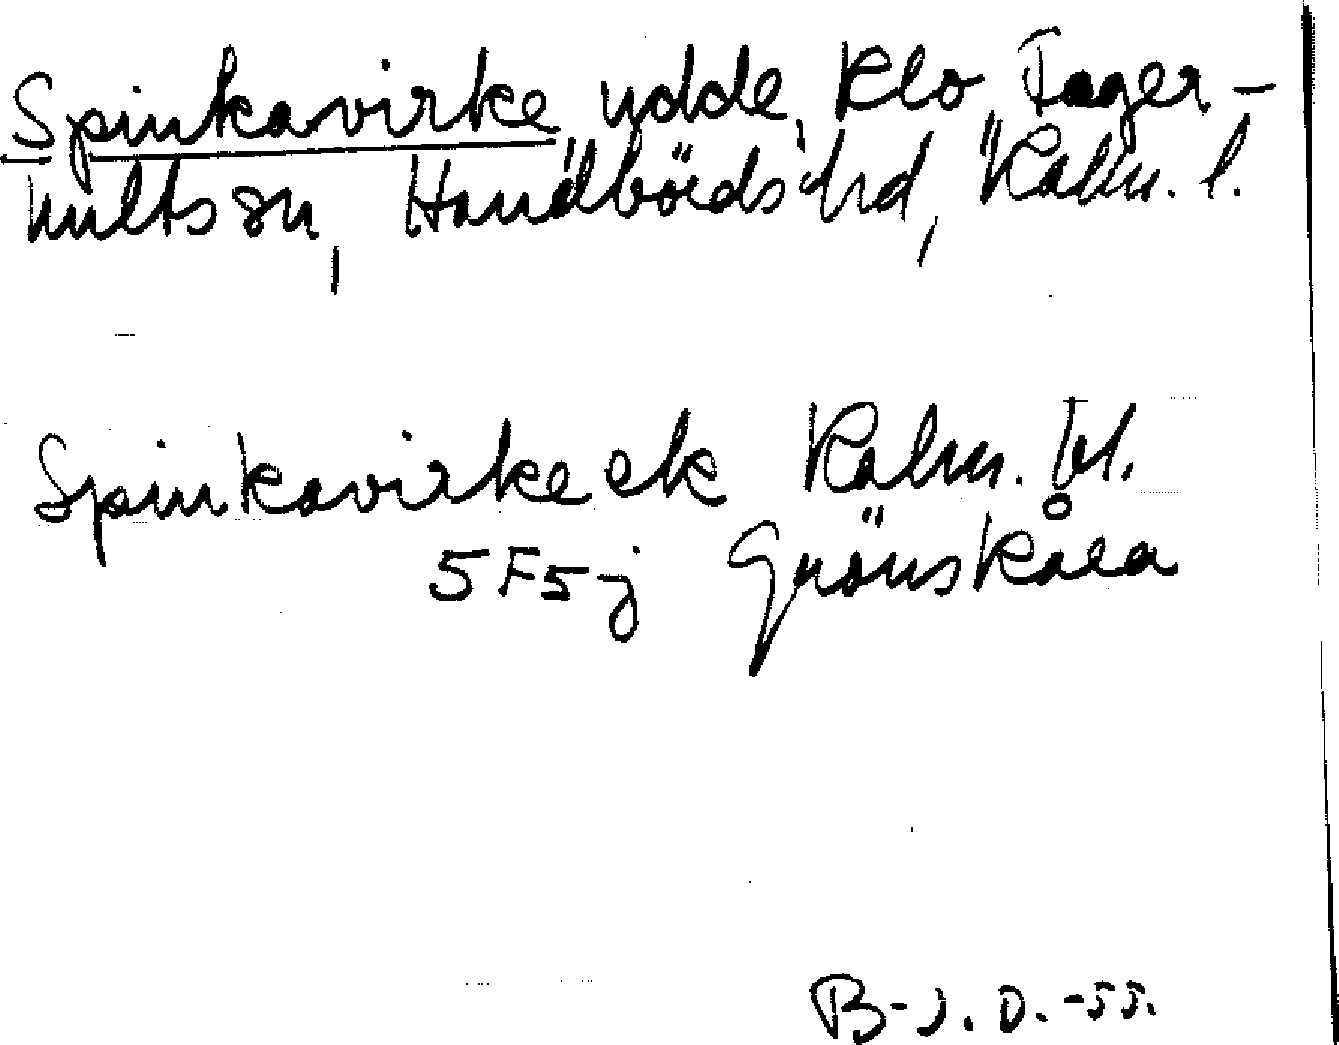 Spinkavirke, udde, Klo, Fager-
hults sn, Handbörds hd, Kalm. l.
Spinkavirke ek Kalm. bl.
5F5j Grönskåra
B-J.O. -55.